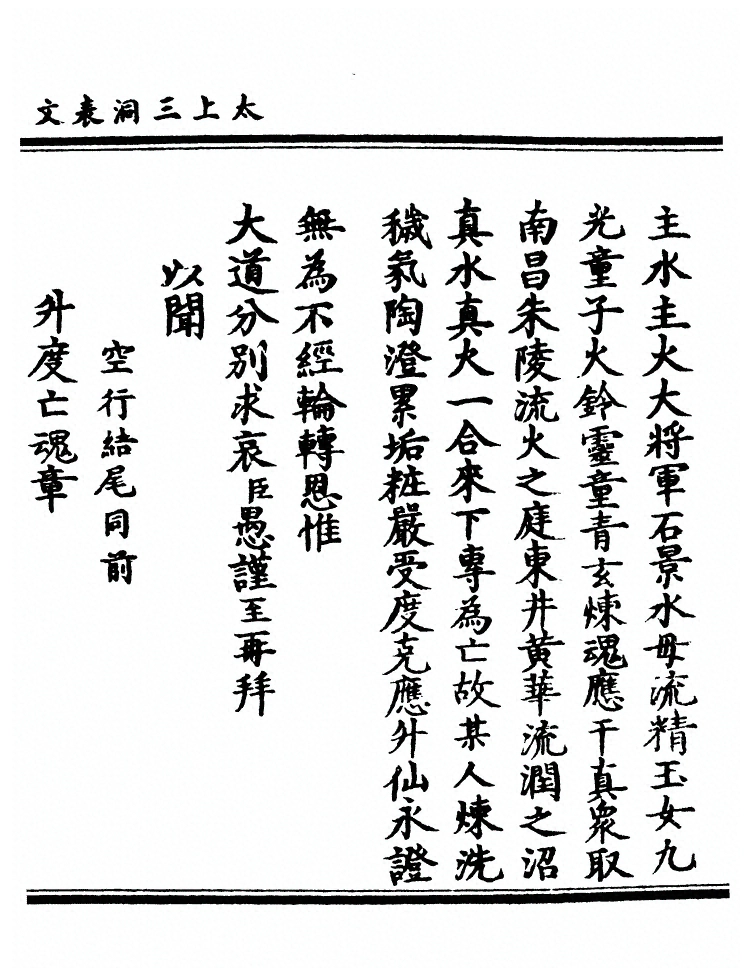 太上三洞表文
主水主火大將軍石景水母流精玉女九
光童子火鈴靈童青玄煉魂應干真眾取
南昌朱陵流火之庭東井黃華流潤之沼
真水真火一合來下專為亡故某人煉洗
穢氣陶澄累垢粧嚴受度克應升仙永證
無為不經輪轉恩惟
大道分別求哀臣愚謹至再拜
以聞
空行結尾同前
升度亡魂章